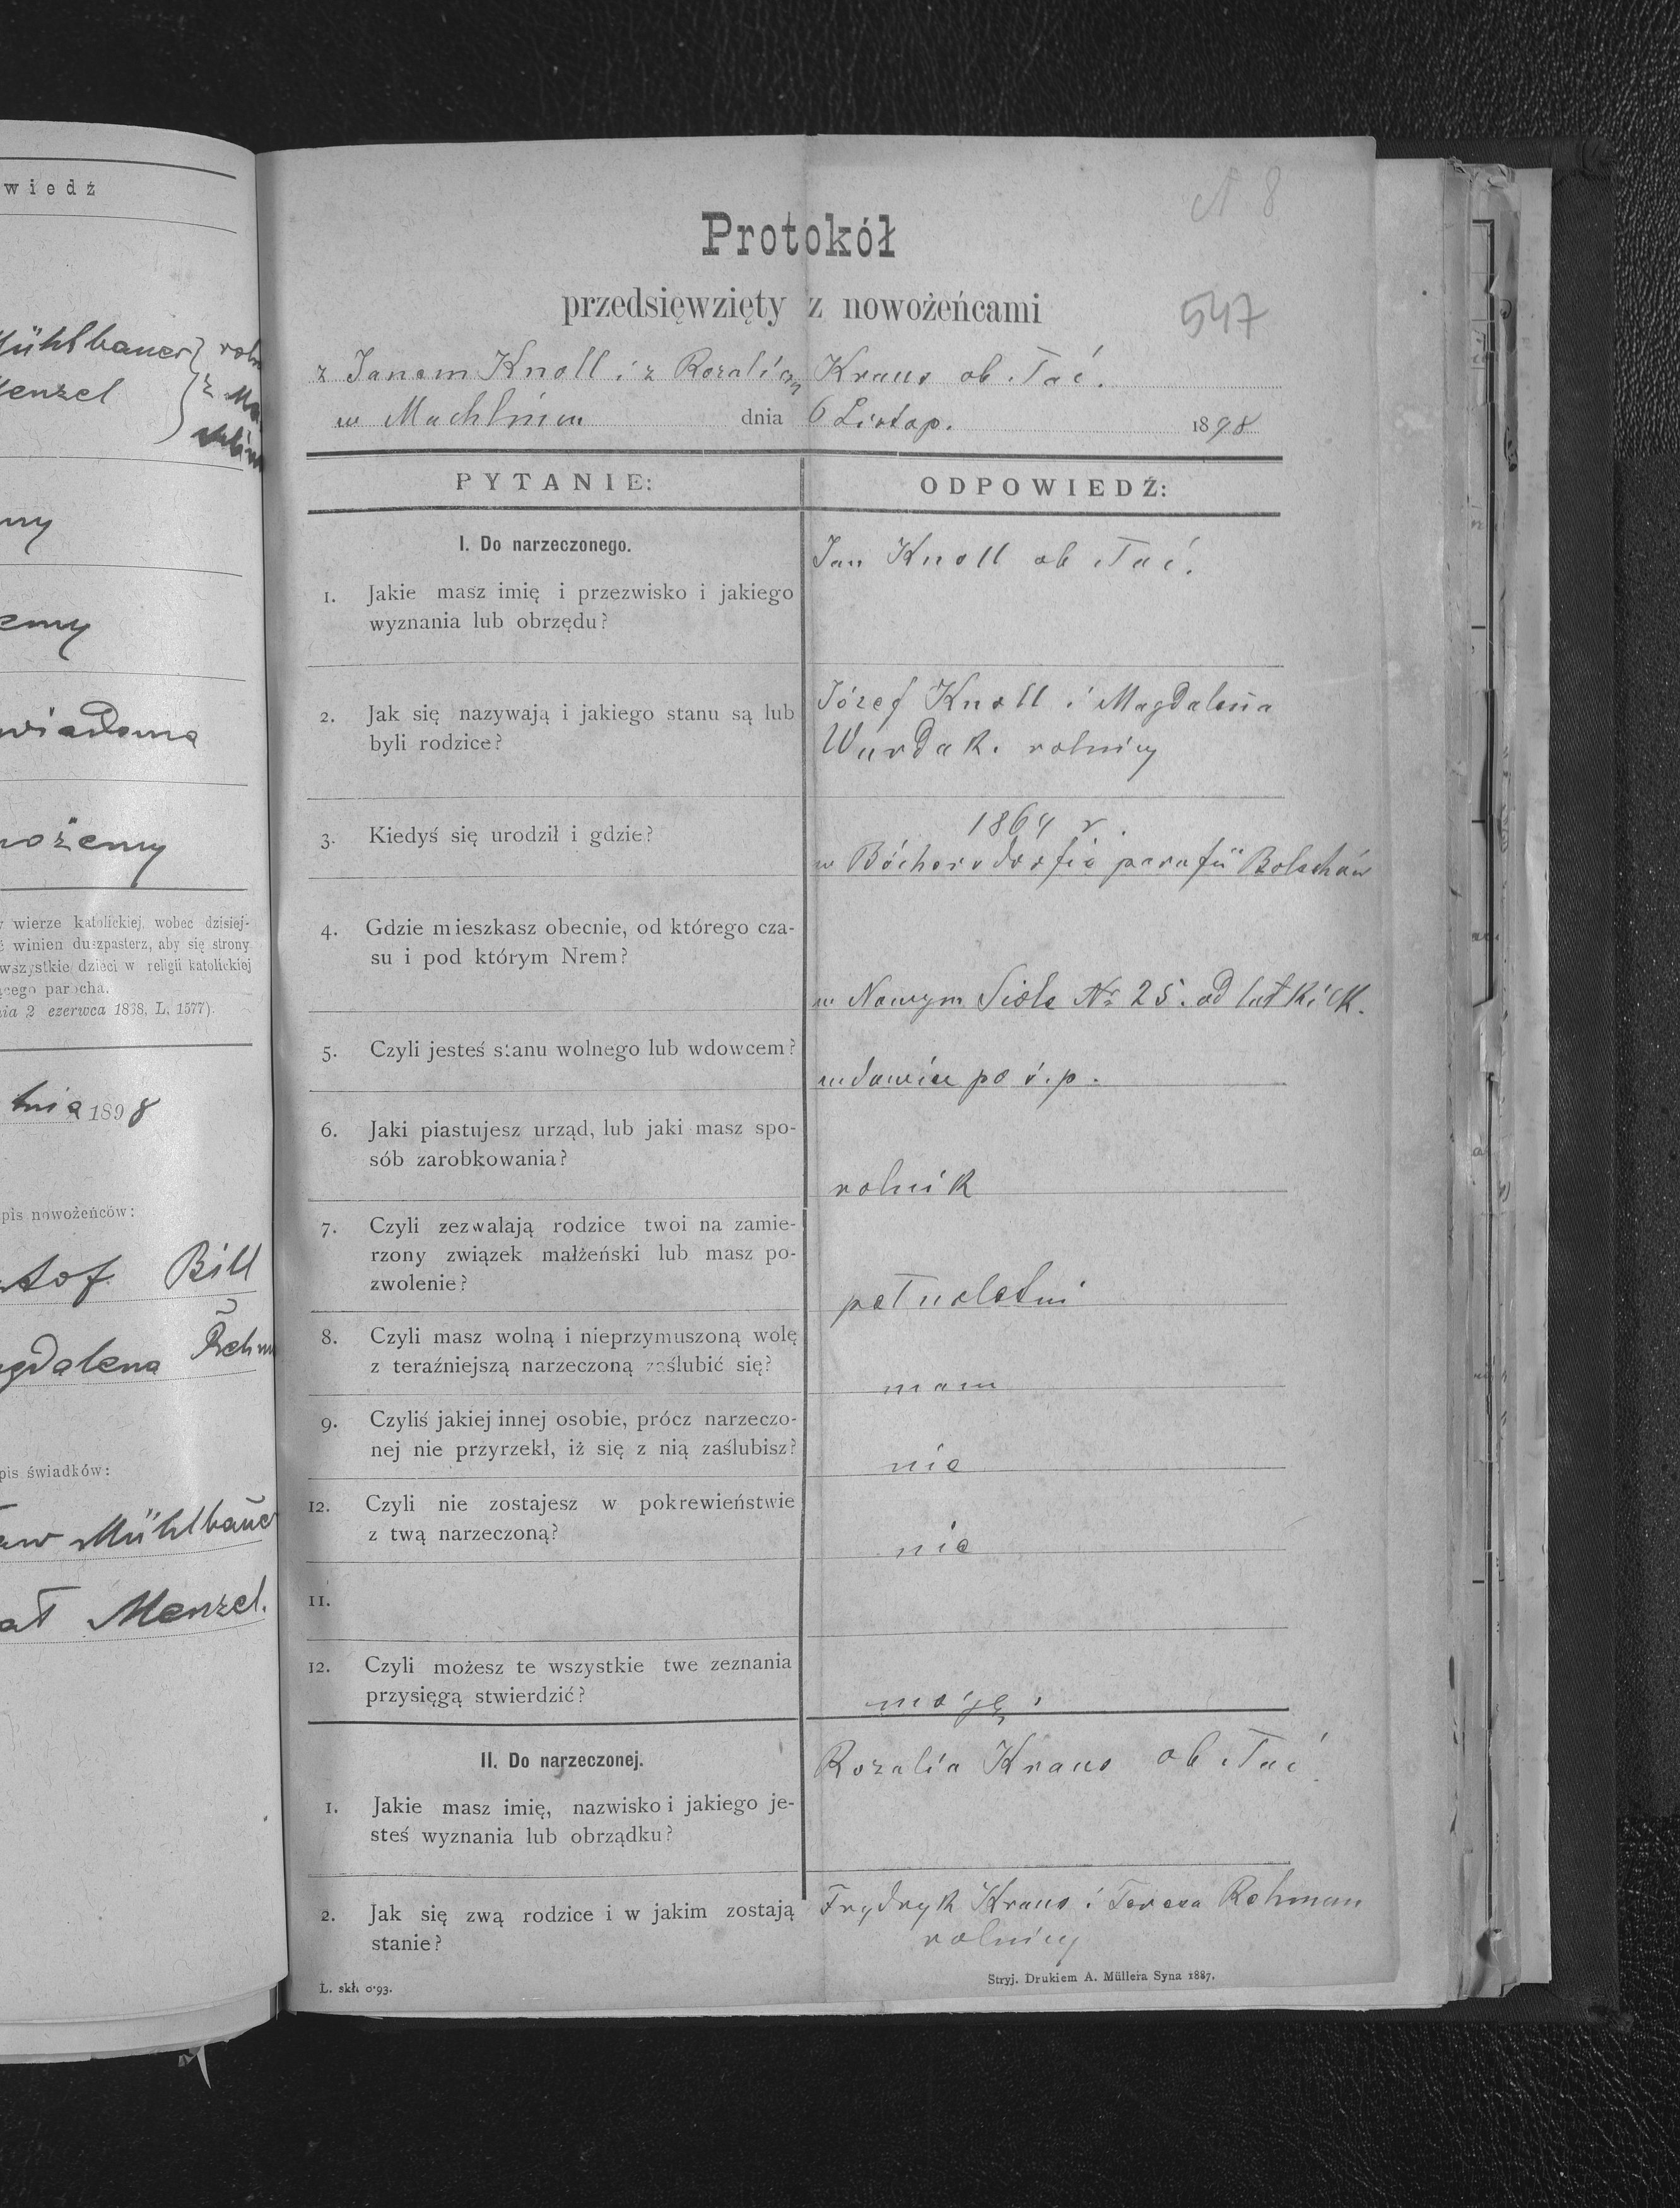 wiedź
Mühlbauer } rol
Menzel } z Ma
ny
emy
wiadoma
możemy
w wierze katolickiej, wobec dzisiej-
ć winien duszpasterz, aby się strony
wszystkie dzieci w religii katolickiej
ącego parocha.
nia 2 czerwca 1868, L. 1577).
tnia 1898
pis nowożeńców:
stof Bill
agdalena Rehm
pis świadków:
aw Mühlbauer
at Menzel.
N 8
Protokół
przedsięwzięty z nowożeńcami
547
z Janem Knoll i z Rozalią Kraus ob. łać.
w Machlińcu dnia 6 Listop. 1898
PYTANIE:
ODPOWIEDŹ:
I. Do narzeczonego.
1. Jakie masz imię i przezwisko i jakiego
wyznania lub obrzędu?
Jan Knoll ob łać.
2. Jak się nazywają i jakiego stanu są lub
byli rodzice?
Józef Knoll i Magdalena
Wurdak. rolnicy
3. Kiedyś się urodził i gdzie?
1864 r.
w parafii Bolechów
4. Gdzie mieszkasz obecnie, od którego cza-
su i pod którym Nrem?
w Nowym Siole Nr 25. od lat kilk.
5. Czyli jesteś stanu wolnego lub wdowcem?
wdowiec po ś.p.
6. Jaki piastujesz urząd, lub jaki masz spo-
sób zarobkowania?
rolnik
7. Czyli zezwalają rodzice twoi na zamie-
rzony związek małżeński lub masz po-
zwolenie?
pełnoletni
8. Czyli masz wolną i nieprzymuszoną wolę
z teraźniejszą narzeczoną zaślubić się?
mam
9. Czyliś jakiej innej osobie, prócz narzeczo-
nej nie przyrzekł, iż się z nią zaślubisz?
nie
12. Czyli nie zostajesz w pokrewieństwie
z twą narzeczoną?
nie
11.
12. Czyli możesz te wszystkie twe zeznania
przysięgą stwierdzić?
mogę.
II. Do narzeczonej.
1. Jakie masz imię, nazwisko i jakiego je-
steś wyznania lub obrządku?
Rozalia Kraus ob łać.
2. Jak się zwą rodzice i w jakim zostają
stanie?
Frydryk Kraus i Teresa Rehman
rolnicy
L. skł. 0·93.
Stryj. Drukiem A. Müllera Syna 1887.